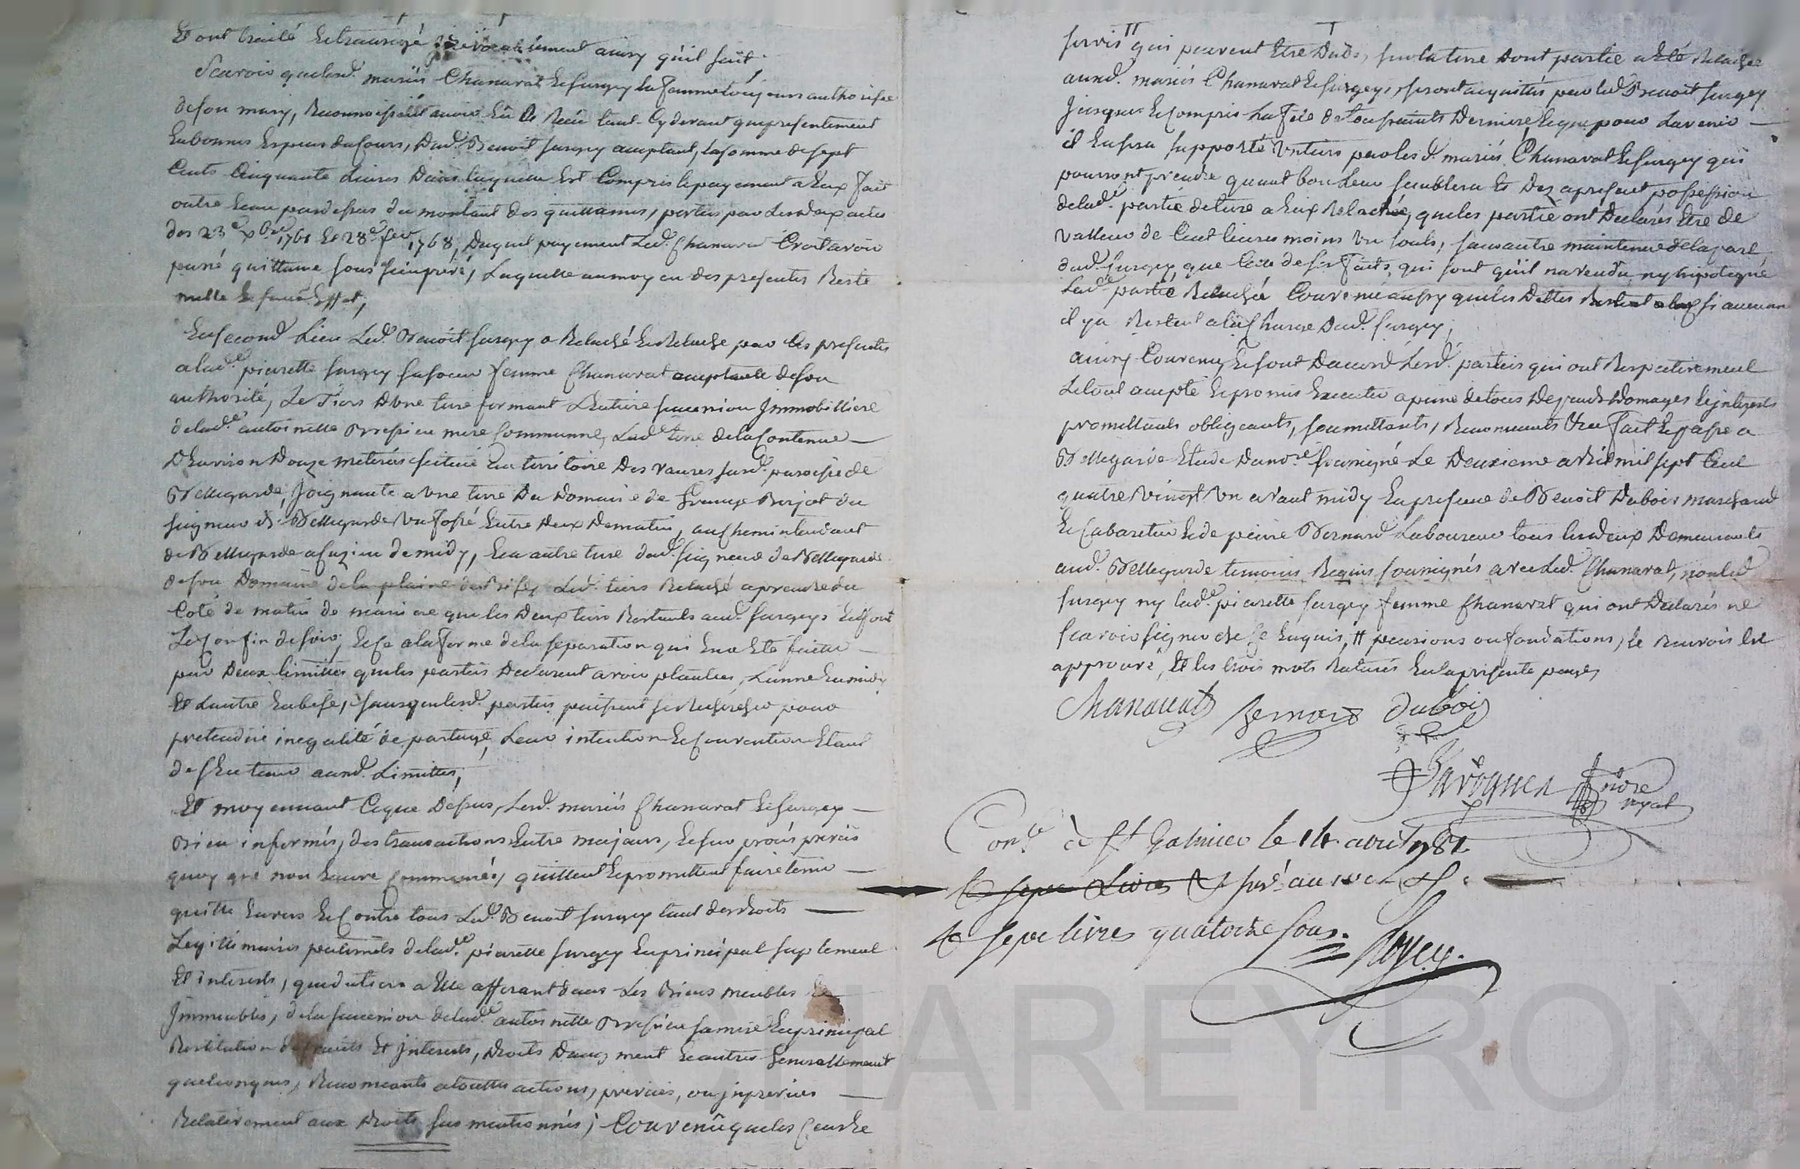 Et ont traité et transigé irrévocablement ainsy qu'il suit.
Scavoir que lesd. mariés Chanavat et surgey la femme toujours authorisée
de son mary, Reconnoissent avoir Eû et Reçu tant cy devant que presentement
En bonnes Especes du Cours, dud. Benoit surgey acceptant, la somme de sept
Cents Cinquante livres dans laquelle est Compris le payement a Eux fait
outre Et au pardessus du montant des quittances, portés par les deux actes
des 23e xbre 1761 Et 28e fevr 1768, duquel payement led. Chanavat Croit avoir
passé quittance sous seing privé, laquelle au moyen des presentes Reste
nulle Et sans Effet,
En second Lieu Led. Benoit surgey a Relaché Et Relache par les presentes
a lade. pierrette surgey sa soeur femme Chanavat acceptante de son
authorité, Le Tiers d'une terre formant L'entiere succession Immobilliere
de lade. antoinette mere Commune, Lade. terre de la Contenue
D'Environ Douze meterés située au territoire Des vaures surd. paroisse de
Bellegarde, Joignante a une terre Du Domaine de Du
seigneur de Bellegarde un fossé Entre Deux De matin, au chemin tendant
de Bellegarde a de midy, Et a autre terre dud. seigneur de Bellegarde
de son Domaine de la plaine de Bise, Led. tiers Relaché a prendre du
Coté de matin de maniere que les Deux tiers Restants aud. surgey
Le Confin de soir, Et ce a la forme de la separation qui En a Eté faitte
par Deux limittes que les parties Declarent avoir plantées, L'une En midy
Et L'autre En bise, sans que lesd. parties puissent se Rechercher pour
pretendue inegalité de partage, Leur intention Et Convention Etant
de s'En tenir auxd. Limittes,
Et moyennant Ceque Dessus, Lesd. mariés Chanavat Et surgey
Bien informés, des transactions Entre majeurs, Et sur procés
quoy que non Encore Commencés, quittent Et promettent faire tenir
quitte Envers Et Contre tous Led. Benoit surgey tant des droits
Legitimaires paternels de lade. pierrette surgey En principal suplement
Et interests, que du tiers a Elle afferant dans Les Biens meubles Et
Immeubles, de la succession de lade. antoinette sa mere En principal
Restitution de fruits Et Interests, Droits D'augment Et autres Generallement
quelconques, Renonceants a touttes actions,
Relativement aux Droits sus mentionnés; Convenû que les Cens Et
servis # qui peuvent Etre Dubs, sur la terre Dont partie a Eté Relachée
auxd. mariés Chanavat Et surgey, seront acquittés par led. Benoit surgey
Jusques Et Compris La fete de toussaints Derniere Et que pour L'avenir
il En sera supporté un tiers par lesd. mariés Chanavat Et surgey qui
pourront prendre quant bon Leur semblera Et Dez apresent possession
de lade. partie de terre a Eux Relachée, que les parties ont Declarés Etre de
valleur de Cent livres moins un sols, sans autre maintenue de la part
dud. surgey, que Celle de ses faits, qui sont qu'il n'a vendû ny hipotequé
Lade. partie Relachée Convenû aussy que les Dettes si aucunne
il y a Restent a la Charge Dud. surgey,
ainsy Convenu, Et sont D'accord Lesd. parties qui ont Respectivement
Le tout accepté Et promis Executer a peine de tous Depends Domages Et interests
promettants obligeants, soumettants, Renonceants &ra fait Et passé a
Bellegarde Etude Du nore. soussigné Le Deuxieme avril mil sept Cent
quatre vingt un avant midy En presence de Benoit Dubois marchand
Et Cabaretier Et de pierre Bernard Laboureur tous les deux Demeurants
aud. Bellegarde temoins Requis soussignés avec Led. Chanavat, non Led.
surgey ny lade. pierrette surgey femme Chanavat qui ont Declarés ne
scavoir signer de ce Enquis, # pensions ou fondations, le Renvois Est
approuvé, Et les trois mots Raturés En la presente page,
Chanavat Bernard Dubois
nore
royal
Conle. à St Galmier le 14 avril 1781
sept livres quatorze sous.
CHAREYRON